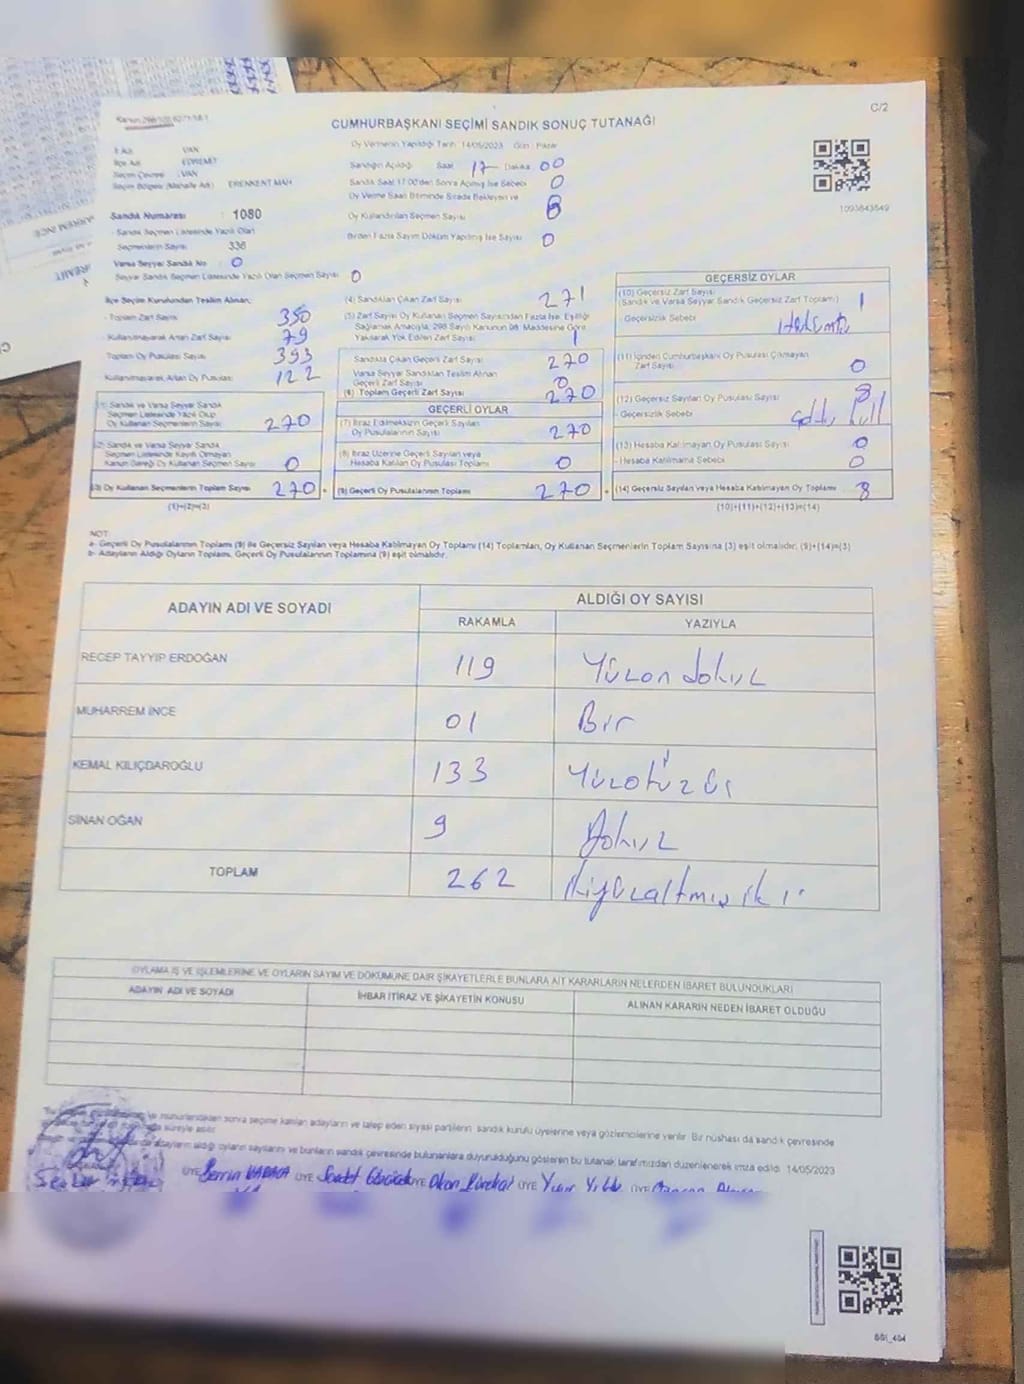 C/2
CUMHURBAŞKANI SEÇİMİ SANDIK SONUÇ TUTANAĞI
Oy Vermenin Yapıldığı Tarih 14/05/2023 Gün: Pazar
İl Adı VAN
İlçe Adı EDREMİT
Seçim Çevresi VAN
Seçim Bölgesi (Mahalle Adı) ERENKENT MAH
Sandık Numarası : 1080
- Sandık Seçmen Listesinde Yazılı Olan
Seçmenlerin Sayısı 336
Varsa Seyyar Sandık No 0
Seyyar Sandık Seçmen Listesinde Yazılı Olan Seçmen Sayısı 0
Sandığın Açıldığı Saat 17 Dakika 00
Sandık Saat 17.00'den Sonra Açılmış İse Sebebi 0
Oy Verme Saati Bitiminde Sırada Bekleyen ve
Oy Kullandırılan Seçmen Sayısı
Birden Fazla Sayım Döküm Yapılmış İse Sayısı 0
1093643649
İlçe Seçim Kurulundan Teslim Alınan;
- Toplam Zarf Sayısı 350
- Kullanılmayarak Artan Zarf Sayısı 79
Toplam Oy Pusulası Sayısı 393
Kullanılmayarak Artan Oy Pusulası 122
(1) Sandık ve Varsa Seyyar Sandık
Seçmen Listesinde Yazılı Olup
Oy Kullanan Seçmenlerin Sayısı 270
(2) Sandık ve Varsa Seyyar Sandık
Seçmen Listesinde Kayıtlı Olmayan
Kanun Gereği Oy Kullanan Seçmen Sayısı 0
(3) Oy Kullanan Seçmenlerin Toplam Sayısı 270
(1)+(2)=(3)
(4) Sandıktan Çıkan Zarf Sayısı 271
(5) Zarf Sayısı Oy Kullanan Seçmen Sayısından Fazla İse, Eşitliği
Sağlamak Amacıyla, 298 Sayılı Kanunun 98. Maddesine Göre
Yakılarak Yok Edilen Zarf Sayısı 1
Sandıkta Çıkan Geçerli Zarf Sayısı 270
Varsa Seyyar Sandıktan Teslim Alınan
Geçerli Zarf Sayısı 0
(6) Toplam Geçerli Zarf Sayısı 270
GEÇERLİ OYLAR
(7) İtiraz Edilmeksizin Geçerli Sayılan
Oy Pusulalarının Sayısı 270
(8) İtiraz Üzerine Geçerli Sayılan veya
Hesaba Katılan Oy Pusulası Toplamı 0
(9) Geçerli Oy Pusulalarının Toplamı 270
GEÇERSİZ OYLAR
(10) Geçersiz Zarf Sayısı
(Sandık ve Varsa Seyyar Sandık Geçersiz Zarf Toplamı) 1
- Geçersizlik Sebebi
(11) İçinden Cumhurbaşkanı Oy Pusulası Çıkmayan
Zarf Sayısı 0
(12) Geçersiz Sayılan Oy Pusulası Sayısı 8
- Geçersizlik Sebebi
(13) Hesaba Katılmayan Oy Pusulası Sayısı 0
- Hesaba Katılmama Sebebi 0
(14) Geçersiz Sayılan veya Hesaba Katılmayan Oy Toplamı 8
(10)+(11)+(12)+(13)=(14)
NOT:
a- Geçerli Oy Pusulalarının Toplamı (9) ile Geçersiz Sayılan veya Hesaba Katılmayan Oy Toplamı (14) Toplamları, Oy Kullanan Seçmenlerin Toplam Sayısına (3) eşit olmalıdır; (9)+(14)=(3)
b- Adayların Aldığı Oyların Toplamı, Geçerli Oy Pusulalarının Toplamına (9) eşit olmalıdır.
ADAYIN ADI VE SOYADI ALDIĞI OY SAYISI
RAKAMLA YAZIYLA
RECEP TAYYIP ERDOĞAN 119 Yüzon dokuz
MUHARREM İNCE 01 Bir
KEMAL KILIÇDAROĞLU 133 Yüzotuzüç
SİNAN OĞAN 9 Dokuz
TOPLAM 262 ikiyüzaltmışiki
OYLAMA İŞ VE İŞLEMLERİNE VE OYLARIN SAYIM VE DÖKÜMÜNE DAİR ŞİKAYETLERLE BUNLARA AİT KARARLARIN NELERDEN İBARET BULUNDUKLARI
ADAYIN ADI VE SOYADI İHBAR İTİRAZ VE ŞİKAYETİN KONUSU ALINAN KARARIN NEDEN İBARET OLDUĞU
sonra seçime katılan adayların ve talep eden siyasi partilerin sandık kurulu üyelerine veya gözlemcilerine verilir. Bir nüshası da sandık çevresinde
süreyle asılır.
adayların aldığı oyların sayılarını ve bunların sandık çevresinde bulunanlara duyurulduğunu gösteren bu tutanak tarafımızdan düzenlenerek imza edildi. 14/05/2023
ÜYE ÜYE ÜYE ÜYE ÜYE